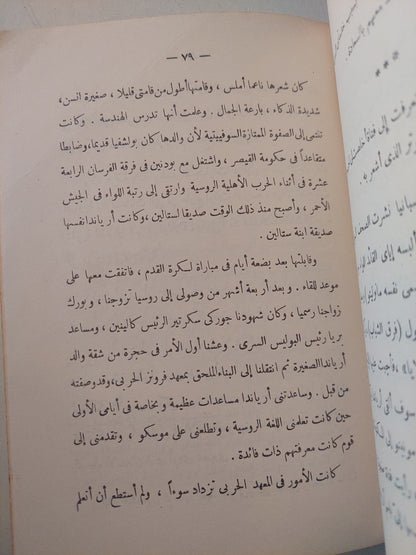 — ٧٩ —
كان شعرها ناعما أملس ، وقامتها أطول من قامتى قليلا ، صغيرة السن ،
شديدة الذكاء ، بارعة الجمال . وعلمت أنها تدرس الهندسة . وكانت
تنتمى إلى الصفوة الممتازة السوفييتية لأن والدها كان بولشفيا قديما، وضابطا
متقاعداً فى حكومة القيصر ، واشتغل مع بودنين فى فرقة الفرسان الرابعة
عشرة فى أثناء الحرب الأهلية الروسية وارتقى إلى رتبة اللواء فى الجيش
الأحمر ، وأصبح منذ ذلك الوقت صديقا لستالين ، وكانت أرياندا نفسها
صديقة ابنة ستالين .
وقابلتها بعد بضعة أيام فى مباراة لكرة القدم ، فاتفقت معها على
موعد للقاء . وبعد أربعة أشهر من وصولى إلى روسيا تزوجنا ، وبورك
زواجنا رسميا ، وكان شهودنا جوركى سكرتير الرئيس كالينين ، ومساعد
بريا رئيس البوليس السرى . وعشنا أول الأمر فى حجرة من شقة والد
أرياندا الصغيرة ثم انتقلنا إلى البناء الملحق بمعهد فرونز الحربى، وقد وصفته
من قبل . وساعدتنى أرياندا مساعدات عظيمة وبخاصة فى أيامى الأولى
حين كانت تعلمنى اللغة الروسية ، وتطلعنى على موسكو ، وتقدمنى إلى
قوم كانت معرفتهم ذات فائدة .
كانت الأمور فى المعهد الحربى تزداد سوءاً ، ولم أستطع أن أتعلم